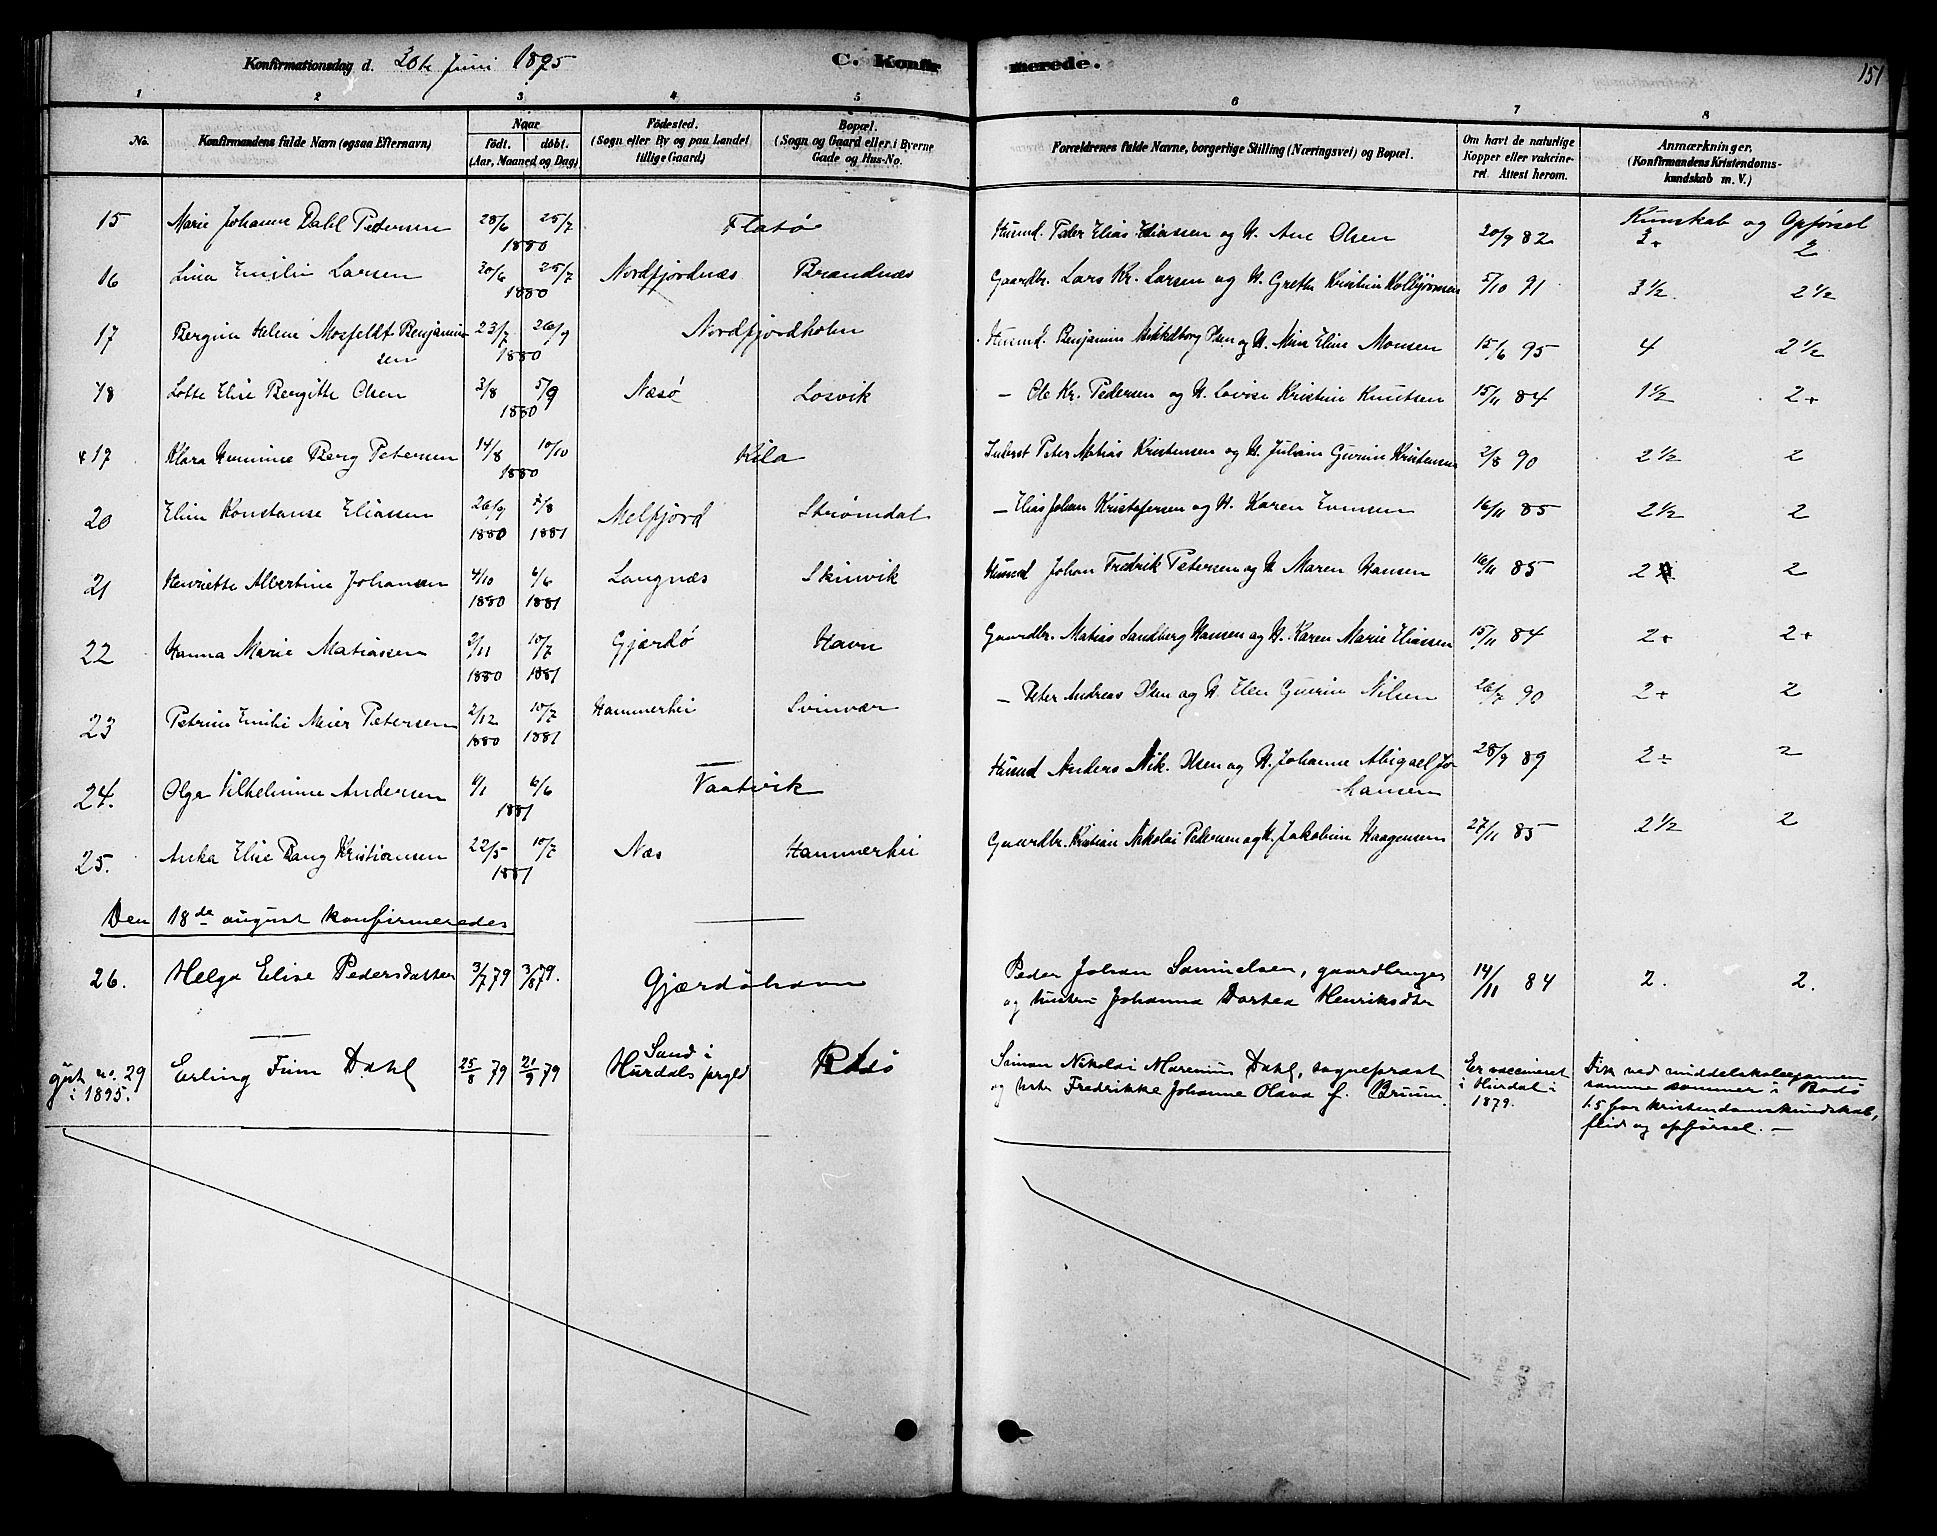 Konfirmationsdag d. 30te Juni 1895 C. Konfirmerede. 151
1 2 3 4 5 6 7 8
No. Konfirmandens fulde Navn (ogsaa Efternavn) Naar født. døbt. (Aar, Maaned og Dag) Fødested. (Sogn eller By og paa Landet tillige Gaard) Bopæl. (Sogn og Gaard eller i Byerne Gade og Hus-No. Forældrenes fulde Navne, borgerlige Stilling (Næringsvei) og Bopæl. Om havt de naturlige Kopper eller vakcineret. Attest herom. Anmærkninger. (Konfirmandens Kristendomskundskab m. V.)
Kunskab og Opførsel
15 Marie Johanne Dahl Petersen 28/6 25/7 1880 Flatø Husmd. Peder Elias Eliassen og H. Ane Olsen 20/9 82 2+ 2
16 Lina Emilie Larsen 30/6 25/7 1880 Nordfjordnæs Brandnæs Gaardbr. Lars Kr. Larsen og H. Grethe Kristine 5/10 91 3½ 2½
17 Bergine Helene Mosfeldt Benjaminsen 23/7 26/9 1880 Nordfjordholm Husmd. Benjamin Mikkelborg Olsen og H. Mine Eline Monsen 15/6 95 4 2½
18 Lotte Elise Bergitte Olsen 3/8 5/9 1880 Næsø Losvik — Ole Kr. Pedersen og H. Lovise Kristine Knutsen 15/11 84 1½ 2+
19 Klara Hermine Berg Petersen 14/8 10/10 1880 Kila Inderst Peter Matias Kristensen og H. Juliane Gurine Kristensen 2/8 90 2½ 2
20 Eline Konstanse Eliassen 26/9 1880 1881 Melfjord Strømdal — Elias Johan Kristofersen og H. Karen 16/11 85 2½ 2
21 Henriette Albertine Johansen 4/10 1880 6/6 1881 Langnæs Skinvik Husmd Johan Fredrik Petersen og H. Maren Hansen 16/11 85 2 2
22 Hanna Marie Matiassen 2/11 1880 10/7 1881 Gjærdø Havn Gaardbr. Matias Sandberg Hansen og H. Karen Marie Eliassen 15/11 84 2+ 2+
23 Petrine Emilie Meier Petersen 2/12 1880 10/7 1881 Hammerhei Svinvær — Peter Andreas Olsen og H. Elen Gurine Nilsen 26/7 90 2+ 2
24. Olga Vilhelmine Andersen 6/6 1881 Vaatvik Husmd Anders Nik. Olsen og H. Johanne Abigael Johansen 28/9 89 2÷ 2
25. Anka Elise Bang Kristiansen 22/5 10/7 1881 Næs Hammerhei Gaardbr. Kristian Nikolai Pedersen og H. Jakobine Haagensen 27/11 85 2½ 2
Den 18de august konfirmeredes
26. Helga Elise Pedersdatter 3/7 79 3/8 79. Gjærdøhavn Peder Johan Samuelsen, gaardbruger 14/11 84 2. 2.
og hustru Johanna Dortea Henriksdtr
gut no. 29 i 1895. Erling Finn Dahl 25/8 79 21/9 79 Sand i Hurdals prgld Rødø Simon Nikolai Marenius Dahl, sogneprest Er vaccineret i Hurdal i 1879. Fik ved middelskoleexamen
og hstr Fredrikke Johanne Olava f. Bruun. samme sommer i Bodø
1.5 for kristendomskundskab,
flid og opførsel. —